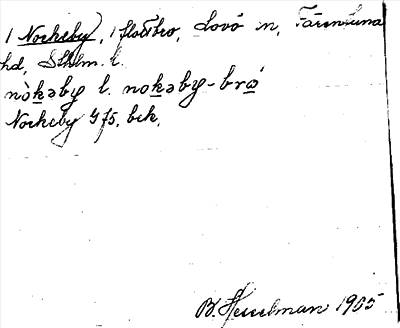 1 Nockeby, 1 flottbro, Lovö sn, Färentuna
hd, Sthlm. l.
nòkəby l. nokəby-brơ
Nockeby G75. bek.
B. Hesselman 1905